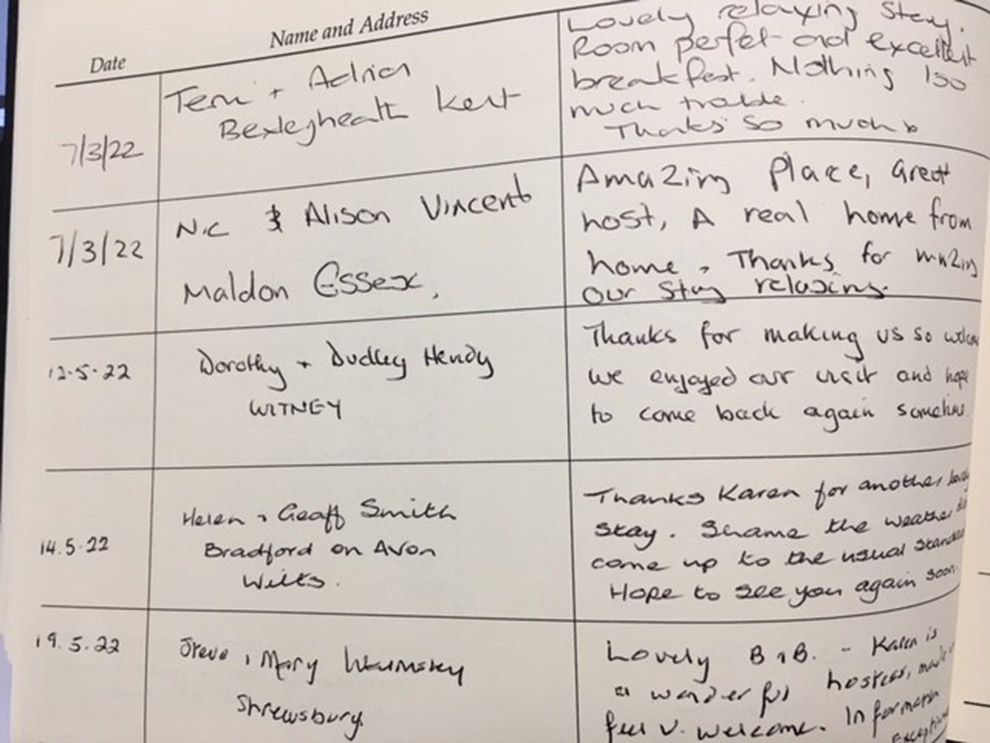 Date
Name and Address
7/3/22
Terri + Adrian
Bexleyheath Kent
Lovely relaxing stay.
Room perfet and excellent
breakfast. Nothing too
much trouble.
Thanks so much
7/3/22
Nic & Alison Vincent
Maldon Essex,
Amazing Place, Great
host, A real home from
home. Thanks for making
our stay relaxing.
12.5.22
Dorothy + Dudley Hendy
WITNEY
Thanks for making us so
we enjoyed our visit and hope
to come back again sometime.
14.5.22
Helen + Geoff Smith
Bradford on Avon
Wilts.
Thanks Karen for another
stay. Shame the weather
come up to the usual
Hope to see you again soon.
19.5.22
Steve + Mary
Shrewsbury
Lovely B+B. - Karen is
a wonderful hostess,
feel v. welcome.